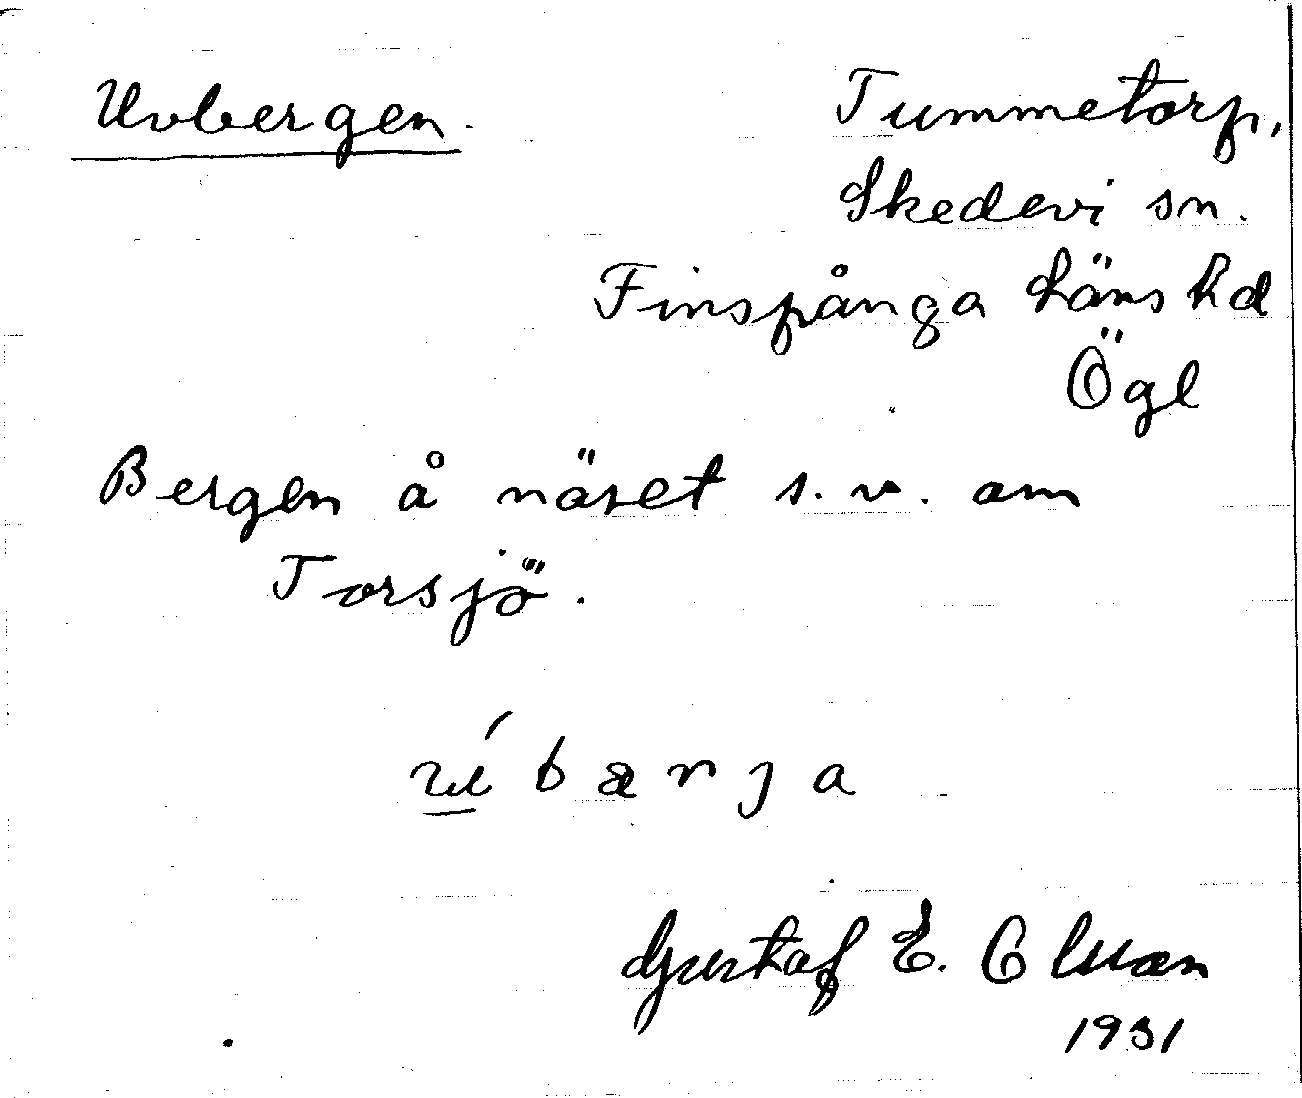 Uvbergen.
Tummetorp,
Skedevi sn.
Finspånga läns hd
Ögl
Bergen å näset s.v. om
Torsjö.
úbærja
Gustaf E. Olsson
1931